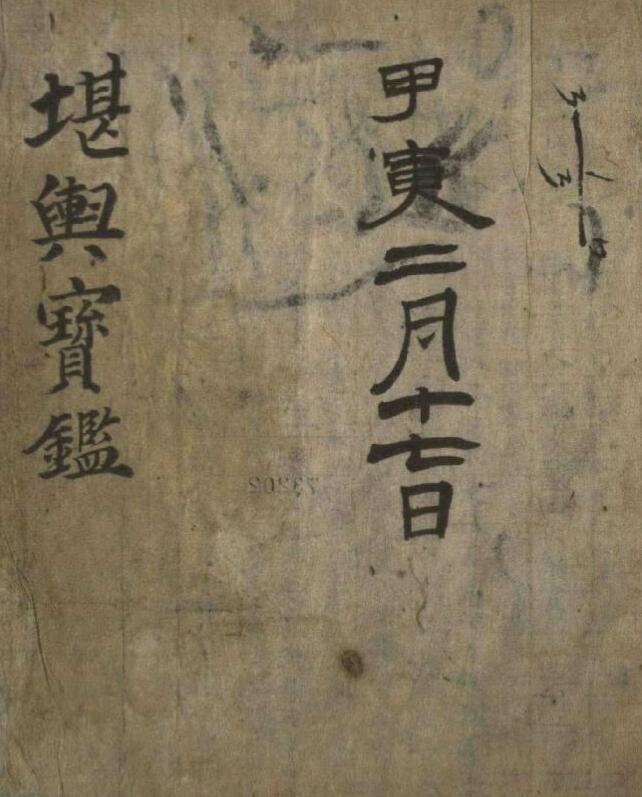 甲寅二月十七日
堪輿寶鑑